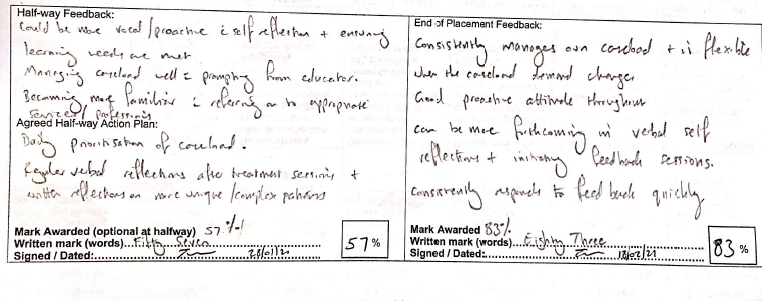 Half-way Feedback:
Could be more vocal/proactive c̄ self reflection + ensuring
learning needs are met
Managing caseload well c̄ prompting from educator.
Becoming more familiar c̄ referring on to appropriate
services/professions
Agreed Half-way Action Plan:
Daily prioritisation of caseload.
Regular verbal reflections after treatment sessions +
written reflections on more unique/complex patients
Mark Awarded (optional at halfway) 57%
Written mark (words)...Fifty Seven
57%
Signed / Dated: 28/01/21
End of Placement Feedback:
Consistently manages own caseload + is flexible
when the caseload demand changes
Good proactive attitude throughout
can be more forthcoming in verbal self
reflections + initiating feedback sessions.
consistently responds to feed back quickly
Mark Awarded 83%
Written mark (words)...Eighty Three
83%
Signed / Dated: /02/21